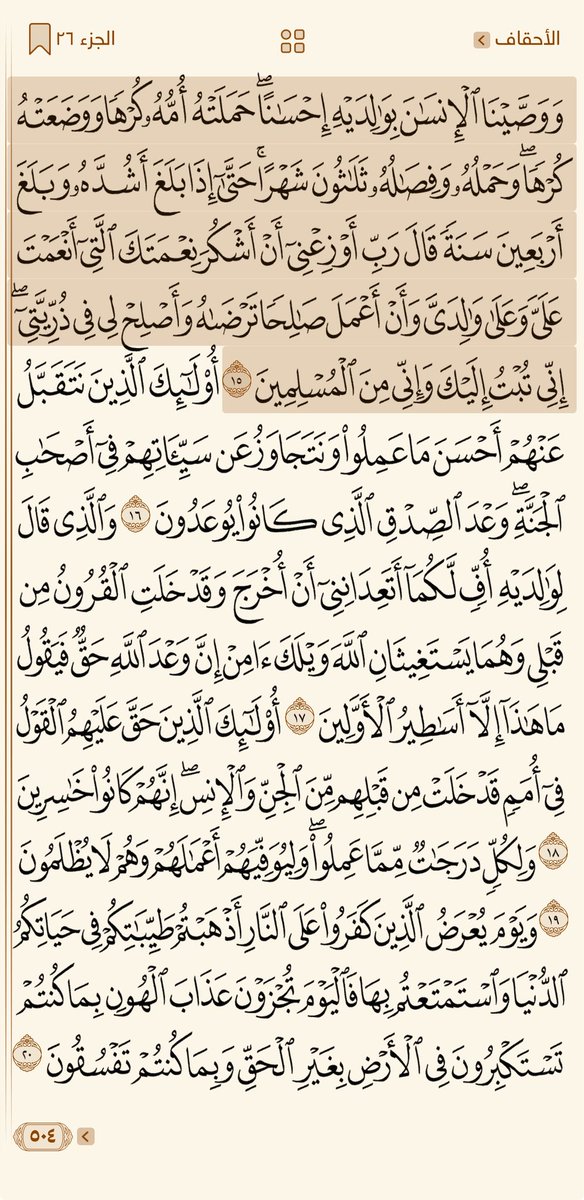 الأحقاف الجزء ٢٦
وَوَصَّيۡنَا ٱلۡإِنسَٰنَ بِوَٰلِدَيۡهِ إِحۡسَٰنًاۖ حَمَلَتۡهُ أُمُّهُۥ كُرۡهٗا وَوَضَعَتۡهُ
كُرۡهٗاۖ وَحَمۡلُهُۥ وَفِصَٰلُهُۥ ثَلَٰثُونَ شَهۡرًاۚ حَتَّىٰٓ إِذَا بَلَغَ أَشُدَّهُۥ وَبَلَغَ
أَرۡبَعِينَ سَنَةٗ قَالَ رَبِّ أَوۡزِعۡنِيٓ أَنۡ أَشۡكُرَ نِعۡمَتَكَ ٱلَّتِيٓ أَنۡعَمۡتَ
عَلَيَّ وَعَلَىٰ وَٰلِدَيَّ وَأَنۡ أَعۡمَلَ صَٰلِحٗا تَرۡضَىٰهُ وَأَصۡلِحۡ لِي فِي ذُرِّيَّتِيٓۖ
إِنِّي تُبۡتُ إِلَيۡكَ وَإِنِّي مِنَ ٱلۡمُسۡلِمِينَ ١٥ أُوْلَٰٓئِكَ ٱلَّذِينَ نَتَقَبَّلُ
عَنۡهُمۡ أَحۡسَنَ مَا عَمِلُواْ وَنَتَجَاوَزُ عَن سَيِّـَٔاتِهِمۡ فِيٓ أَصۡحَٰبِ
ٱلۡجَنَّةِۖ وَعۡدَ ٱلصِّدۡقِ ٱلَّذِي كَانُواْ يُوعَدُونَ ١٦ وَٱلَّذِي قَالَ
لِوَٰلِدَيۡهِ أُفّٖ لَّكُمَآ أَتَعِدَانِنِيٓ أَنۡ أُخۡرَجَ وَقَدۡ خَلَتِ ٱلۡقُرُونُ مِن
قَبۡلِي وَهُمَا يَسۡتَغِيثَانِ ٱللَّهَ وَيۡلَكَ ءَامِنۡ إِنَّ وَعۡدَ ٱللَّهِ حَقّٞ فَيَقُولُ
مَا هَٰذَآ إِلَّآ أَسَٰطِيرُ ٱلۡأَوَّلِينَ ١٧ أُوْلَٰٓئِكَ ٱلَّذِينَ حَقَّ عَلَيۡهِمُ ٱلۡقَوۡلُ
فِيٓ أُمَمٖ قَدۡ خَلَتۡ مِن قَبۡلِهِم مِّنَ ٱلۡجِنِّ وَٱلۡإِنسِۖ إِنَّهُمۡ كَانُواْ خَٰسِرِينَ
١٨ وَلِكُلّٖ دَرَجَٰتٞ مِّمَّا عَمِلُواْۖ وَلِيُوَفِّيَهُمۡ أَعۡمَٰلَهُمۡ وَهُمۡ لَا يُظۡلَمُونَ
١٩ وَيَوۡمَ يُعۡرَضُ ٱلَّذِينَ كَفَرُواْ عَلَى ٱلنَّارِ أَذۡهَبۡتُمۡ طَيِّبَٰتِكُمۡ فِي حَيَاتِكُمُ
ٱلدُّنۡيَا وَٱسۡتَمۡتَعۡتُم بِهَا فَٱلۡيَوۡمَ تُجۡزَوۡنَ عَذَابَ ٱلۡهُونِ بِمَا كُنتُمۡ
تَسۡتَكۡبِرُونَ فِي ٱلۡأَرۡضِ بِغَيۡرِ ٱلۡحَقِّ وَبِمَا كُنتُمۡ تَفۡسُقُونَ ٢٠
٥٠٤